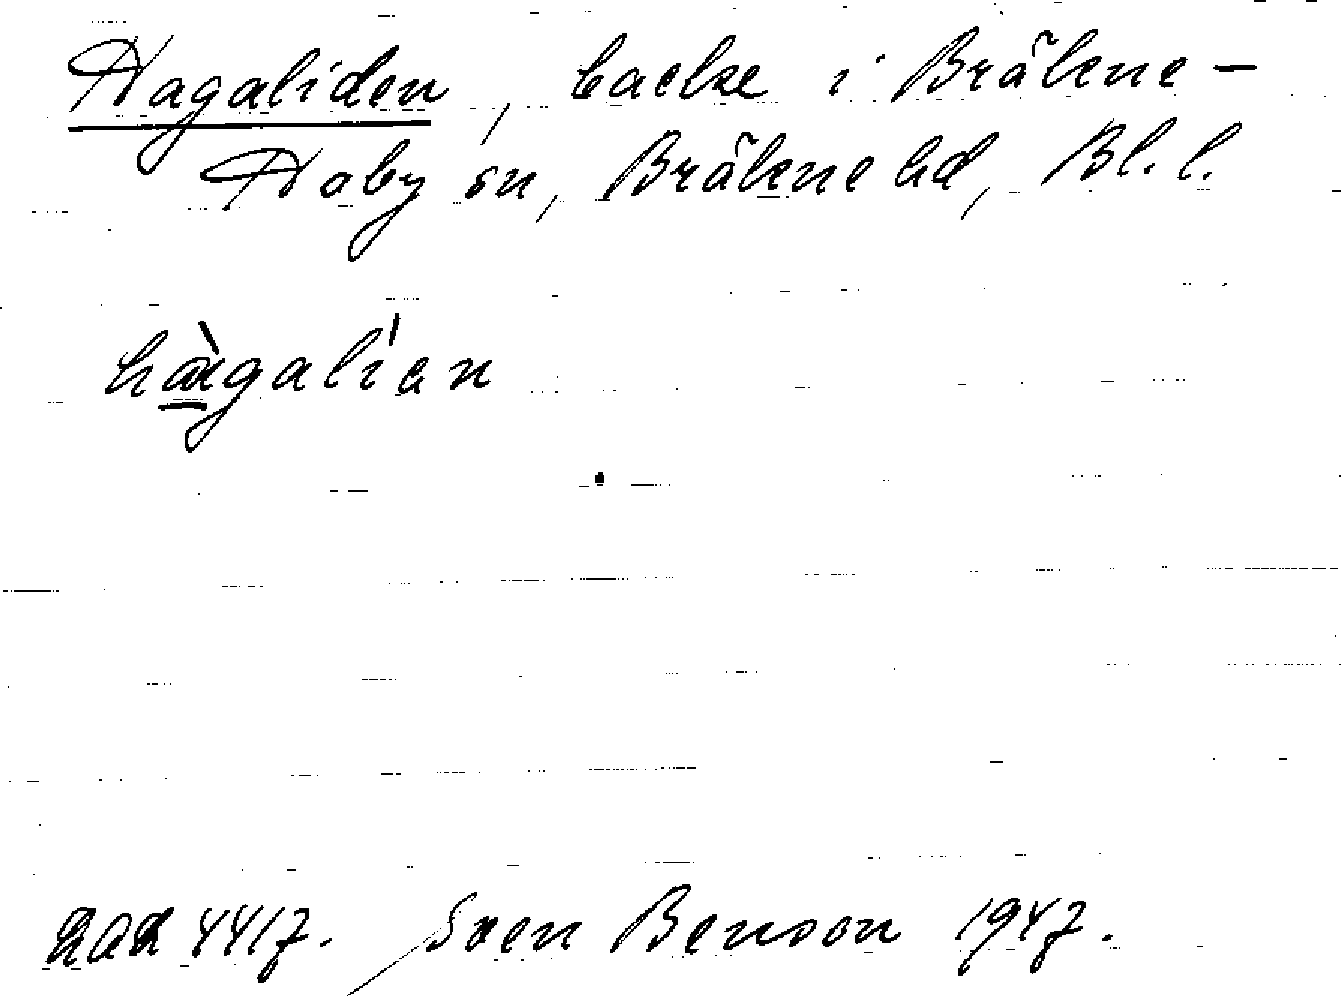 Hagaliden, backe i Bräkne-
Hoby sn, Bräkne hd, Bl. l.
hàgalían
4417. Sven Benson 1947.